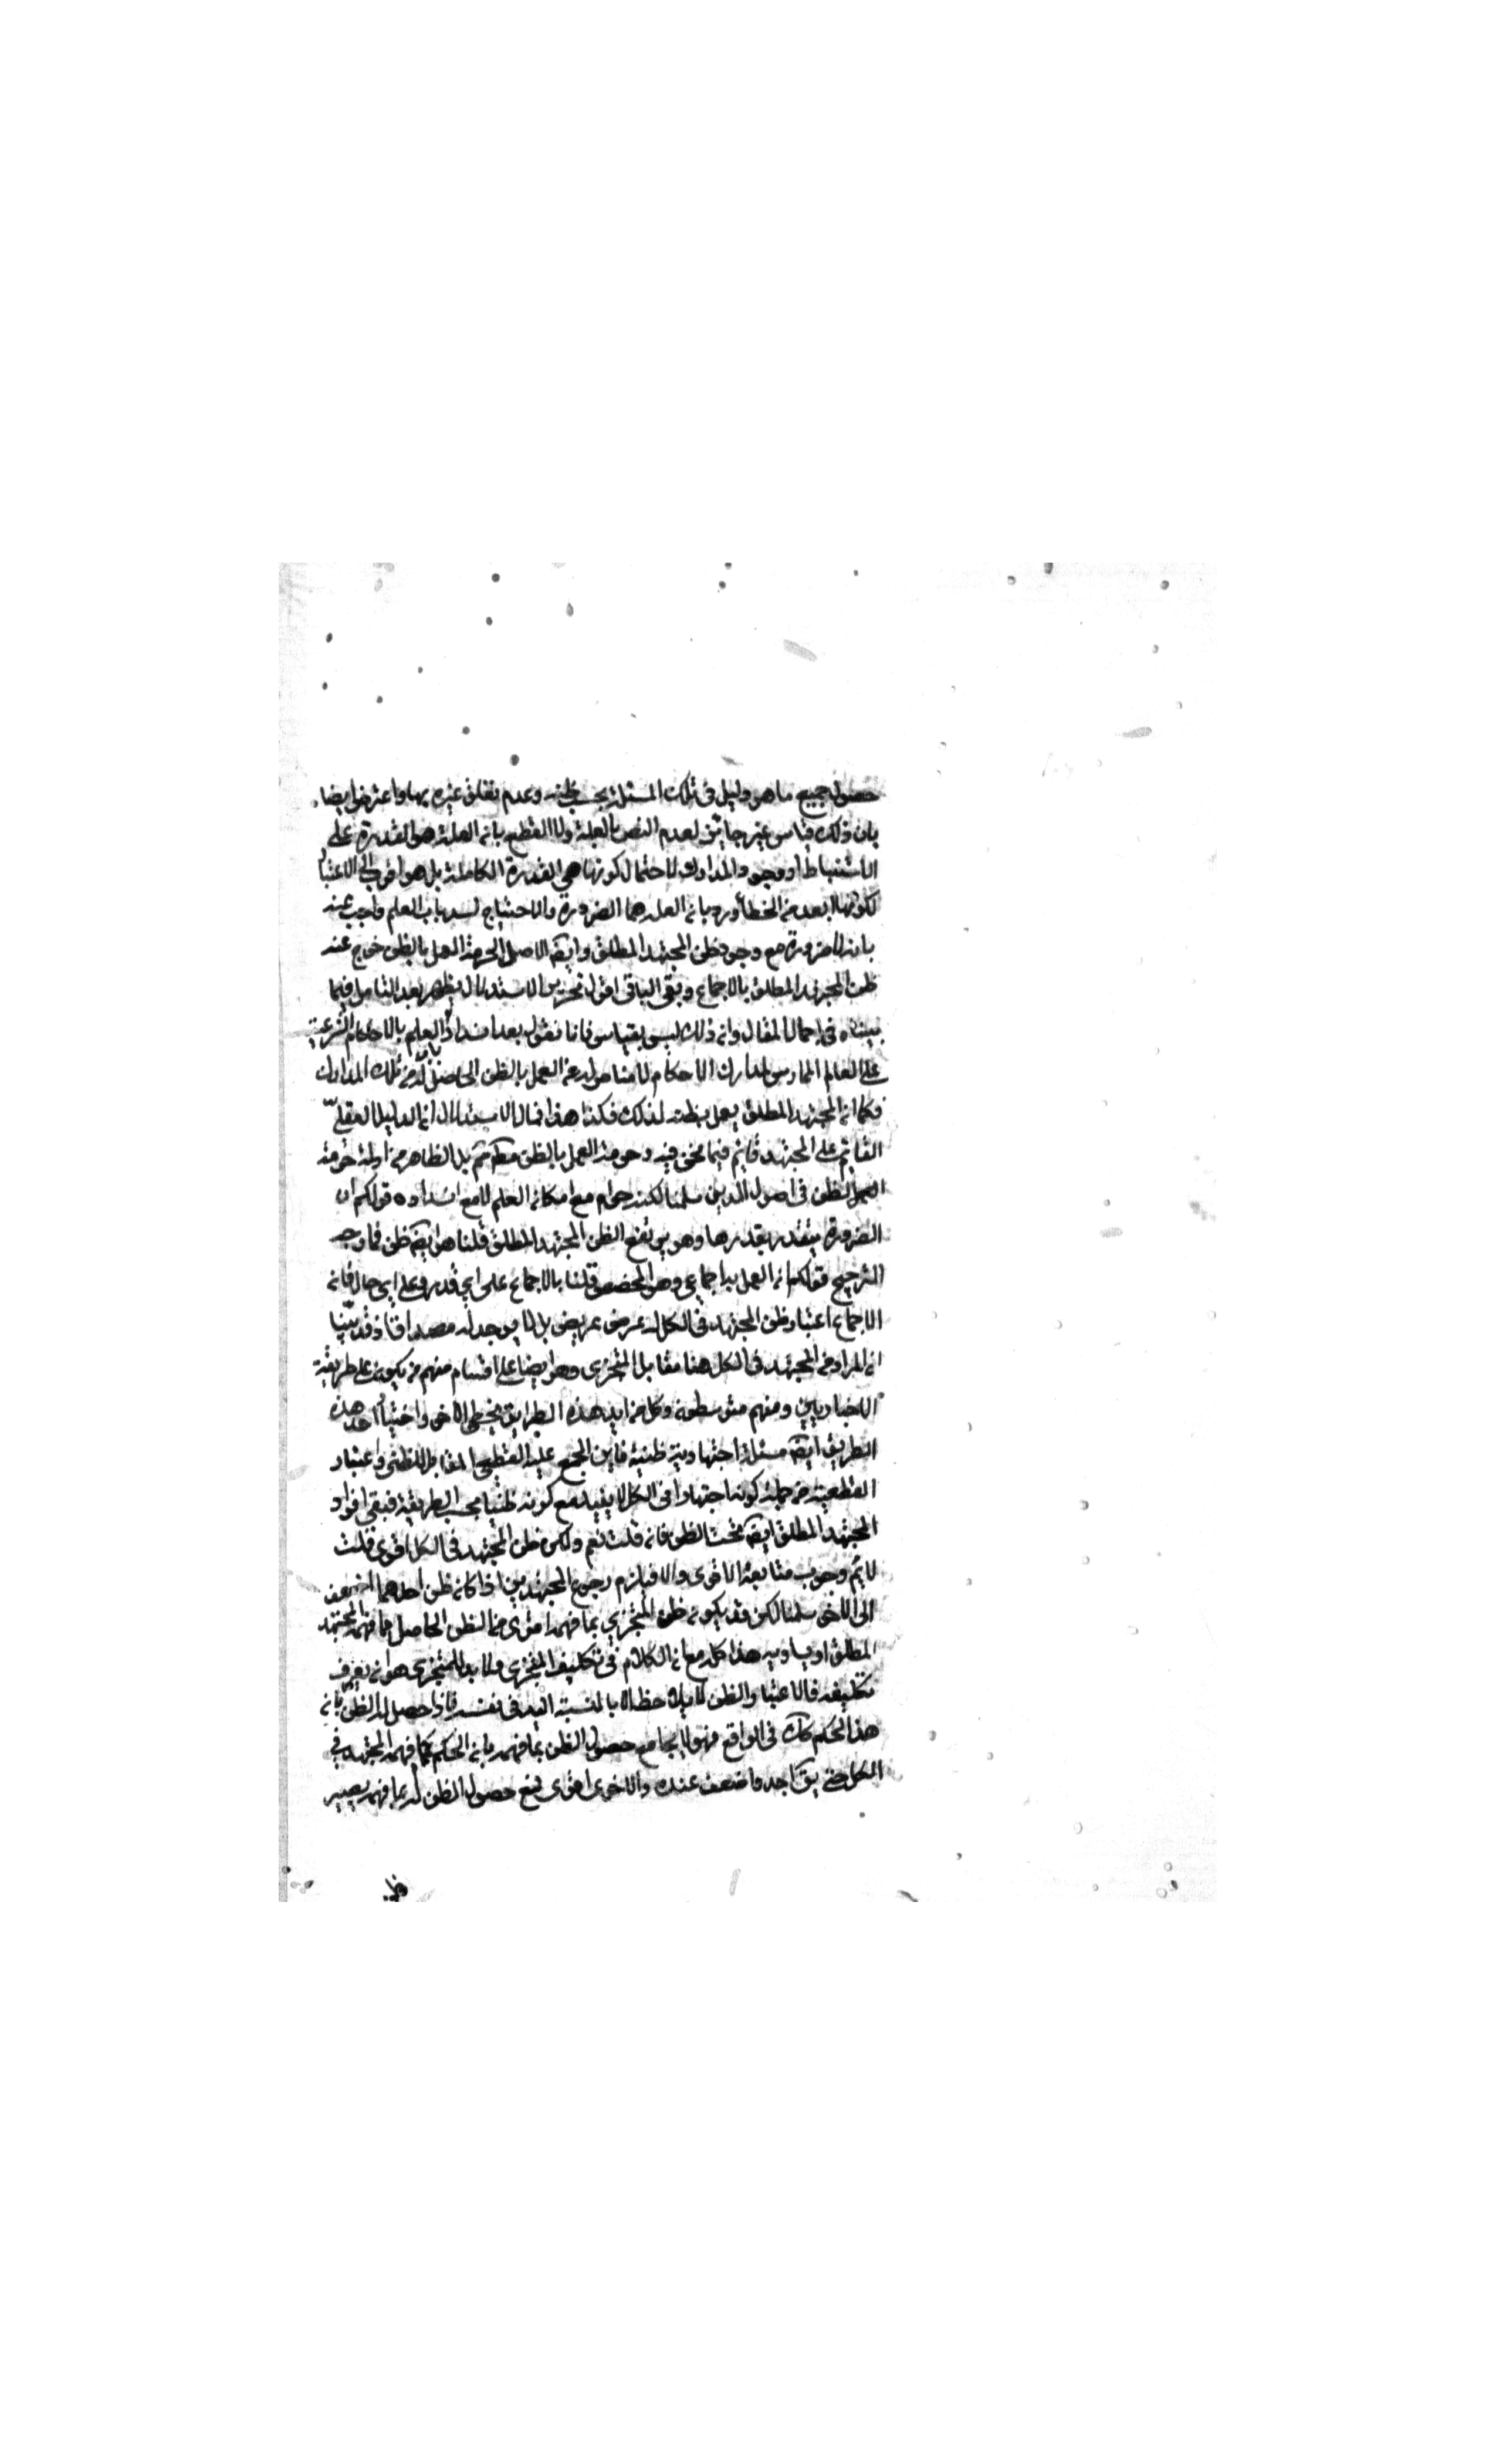 حصول جميع ما هو دليل فى تلك المسئلة بحسب ظنه وعدم تعلق غيره بها واعترض ايضا
بان ذلك قياس غير جايز لعدم النص بالعلة ولا القطع بان العلة هو القدرة على
الاستنباط او وجود المدارك لاحتمال كونها هى القدرة الكاملة بل هو اقرب الى الاعتبار
لكونها ابعد من الخطأ ورد بان العلة هما الضرورة والاحتياج لسد باب العلم واجيب عنه
بانه لا ضرورة مع وجود ظن المجتهد المطلق وايضه الاصل حرمة العمل بالظن خرج عنه
ظن المجتهد المطلق بالاجماع وبقى الباقى اقول تحرير الاستدلال يظهر بعد التامل فيما
بيناه فى اجمال المقال وان ذلك ليس بقياس فانا نقول بعد انسداد باب العلم بالاحكام الشرعية
على العالم الممارس لمدارك الاحكام لا مناص له عن العمل بالظن الحاصل له من تلك المدارك
فكما ان المجتهد المطلق يعمل بظنه لذلك فكذا هذا فمآل الاستدلال ان الدليل العقلى
القايم على المجتهد قايم فيما نحن فيه وحرمة العمل بالظن مطم مم بل الظاهر من ادلة حرمة
العمل بالظن فى اصول الدين سلمنا لكنه حرام مع امكان العلم لا مع انسداده قولكم ان
الضرورة يتقدر بقدرها وهو يرتفع الظن المجتهد المطلق قلنا هو ايضه ظن فما وجه
الترجيح قولكم ان العمل به اجماعى وهو المخصص قلنا بالاجماع على اى قدر وعلى اى حال فان
الاجماع اعتبار ظن المجتهد فى الكل له عرض عريض بل لا يوجد له مصداقا وقد بيّنا
ان المراد من المجتهد فى الكل هنا مقابل المتجزى وهو ايضا على اقسام منهم من يكون على طريقة
الاخباريين ومنهم متوسطون وكل من ايد هذه الطرايق يخطى الاخر واختيار احد هذه
الطريق ايضه مسئلة اجتهادية ظنية فاين المجمع عليه القطعى المقابل للظنى واعتبار
القطعية من جملة كونه اجتهادا فى الكل لا يفيد مع كونه ظنيا بحسب الطريقة فبقى افراد
المجتهد المطلق ايضه تحت الظن فان قلت نعم ولكن ظن المجتهد فى الكل اقوى قلت
لا يتم وجوب متابعة الاقوى والا فيلزم رجوع المجتهدين اذا كان ظن احدهما اضعف
الى الاخر سلمنا لكن قد يكون ظن المتجزى بما فهمه اقوى من الظن الحاصل مما فهمه المجتهد
المطلق او يساويه هذا كله مع ان الكلام فى تكليف المتجزى ولا بد للمتجزى هو ان يعرف
تكليفه فالاعتبار والظن لا يلاحظ الا بالنسبة اليه فى نفسه فاذا حصل له الظن بان
هذا الحكم كك فى الواقع فهو لا يجامع حصول الظن بما فهمه بان الحكم كما فهمه المجتهد فى
الكل حتى يق احدهما ضعف عنده والاخر اقوى فمع حصول الظن له بما فهمه يصير